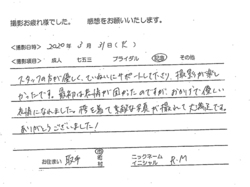 撮影お疲れ様でした。 感想をお願いいたします。
<撮影日時> 2020年 3月 31日(火)
<撮影項目> 成人 七五三 ブライダル 記念 その他
スタッフの方が優しく、ていねいにサポートして下さり、撮影が楽し
かったです。最初は表情が固かったのですが、おかげで優しい
表情になれました。袴を着て素敵な写真が撮れて大満足です。
ありがとうございました!
お住まい 取手 市 ニックネーム
イニシャル R.M